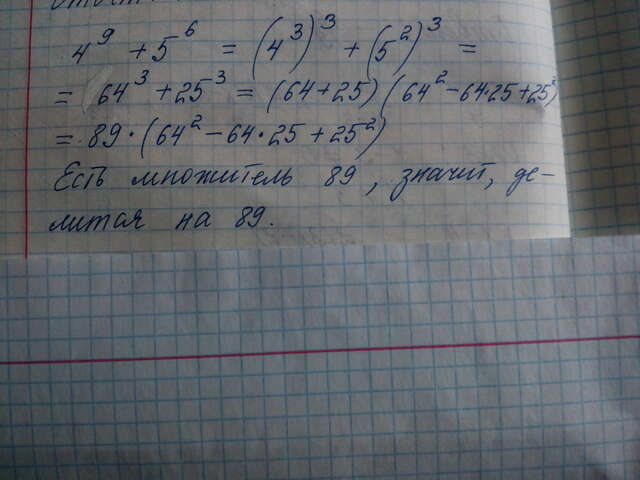 4⁹ + 5⁶ = (4³)³ + (5²)³ =
= 64³ + 25³ = (64+25)(64² - 64·25 + 25²)
= 89·(64² - 64·25 + 25²)
Есть множитель 89, значит, де-
лится на 89.